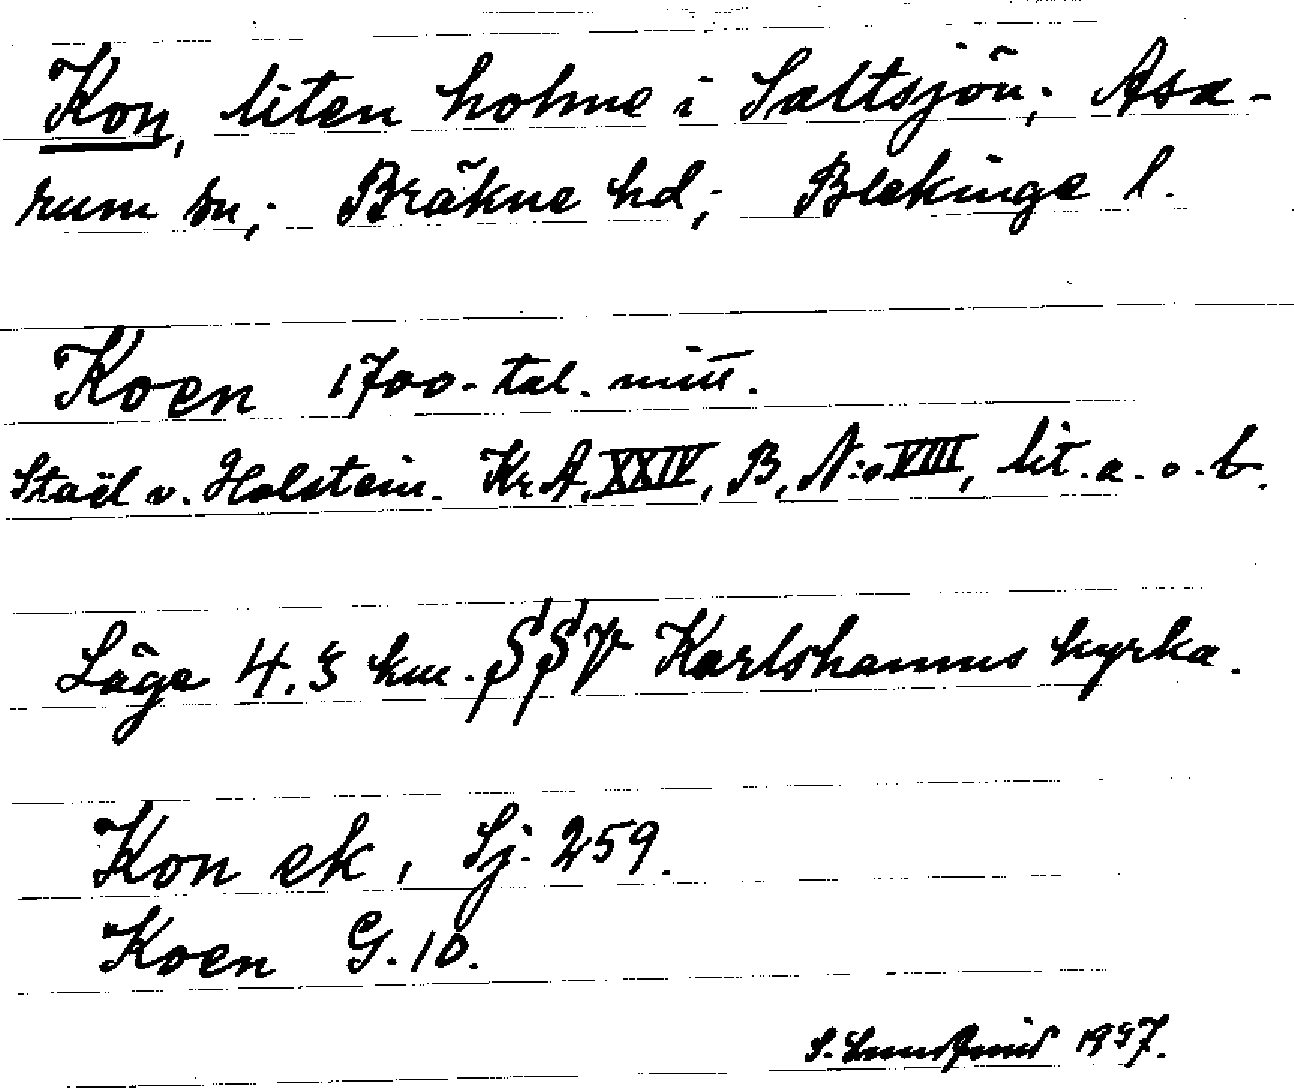 Kon, liten holme i Saltsjön; Asa-
rum sn; Bräkne hd; Blekinge l.
Koen 1700-tal. mitt.
Staël v. Holstein. Kr.A. XXIV, B, N:o VIII, lit. a. o. b.
Läge 4.3 km. SSV Karlshamns kyrka.
Kon ek, Sj. 259.
Koen G. 10.
S. 1957.